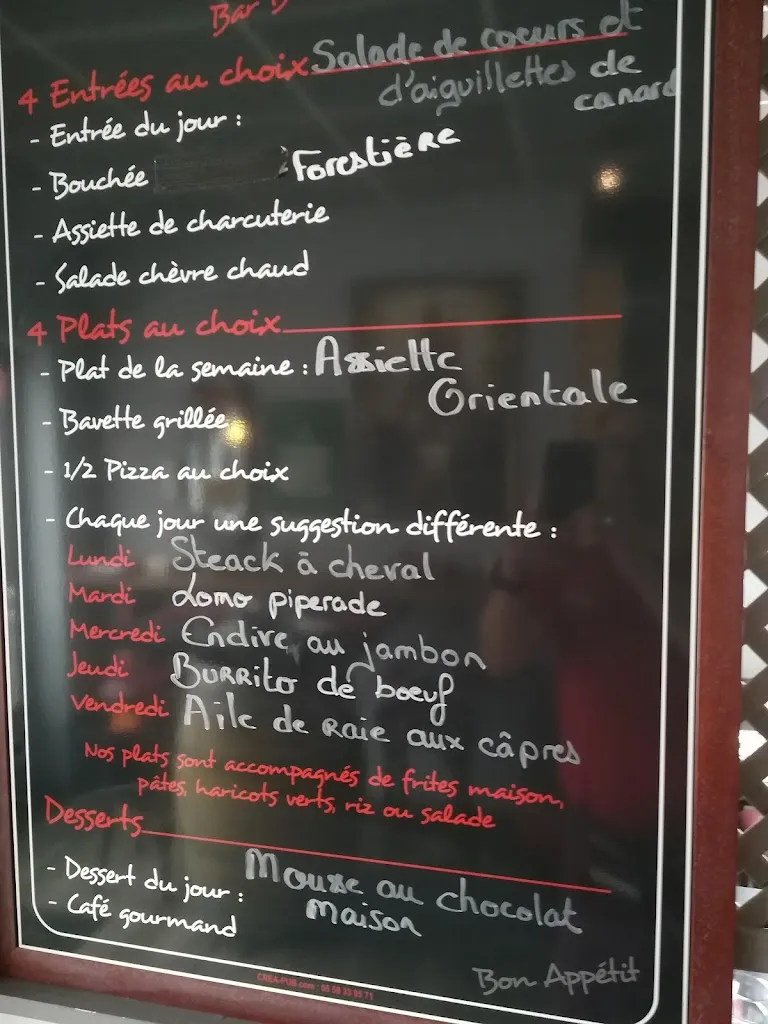 Bar
4 Entrées au choix Salade de coeurs et
d'aiguillettes de
canard
- Entrée du jour :
- Bouchée Forestière
- Assiette de charcuterie
- Salade chèvre chaud
4 Plats au choix
- Plat de la semaine : Assiette
Orientale
- Bavette grillée
- 1/2 Pizza au choix
- Chaque jour une suggestion différente :
Lundi Steack à cheval
Mardi Lomo piperade
Mercredi Endive au jambon
Jeudi Burrito de boeuf
Vendredi Aile de raie aux câpres
Nos plats sont accompagnés de frites maison,
pâtes, haricots verts, riz ou salade
Desserts
- Dessert du jour : Mousse au chocolat
maison
- Café gourmand
Bon Appétit
CREA-PUB.com : 05 59 33 95 71